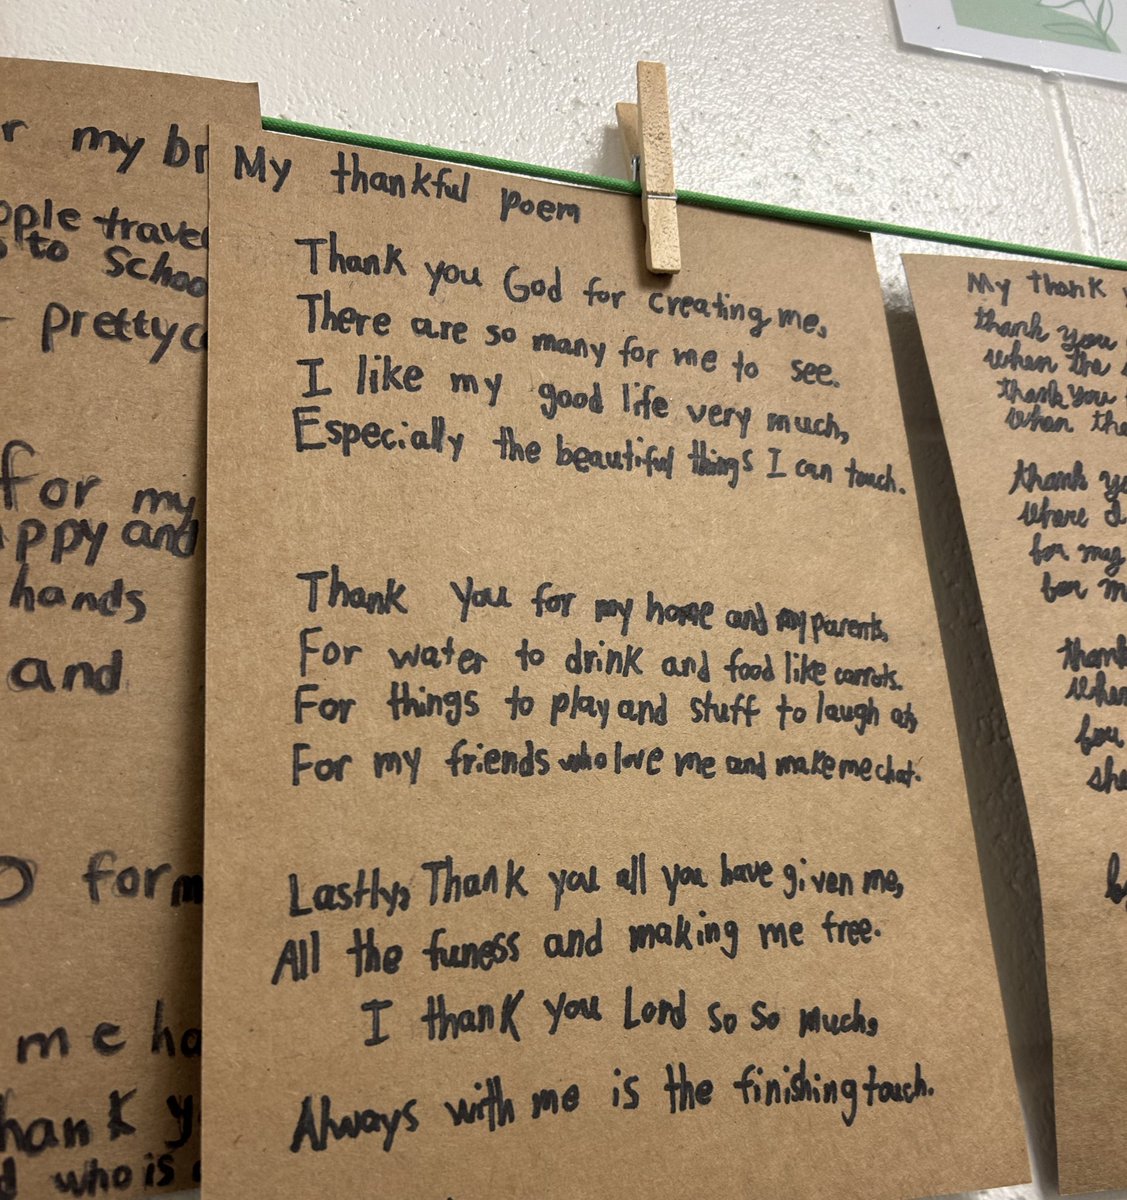 r my br
ople trave
to School
pretty c
for my
appy and
hands
and
for m
me ha
hank y
d who is
My thankful poem
Thank you God for creating me,
There are so many for me to see.
I like my good life very much,
Especially the beautiful things I can touch.
Thank you for my home and my parents,
For water to drink and food like carrots.
For things to play and stuff to laugh at,
For my friends who love me and make me chat.
Lastly, Thank you all you have given me,
All the funess and making me free.
I thank you Lord so so much,
Always with me is the finishing touch.
My thank
thank you
when the
thank you
when the
thank yo
where I
for my
for m
thank
when
for
she